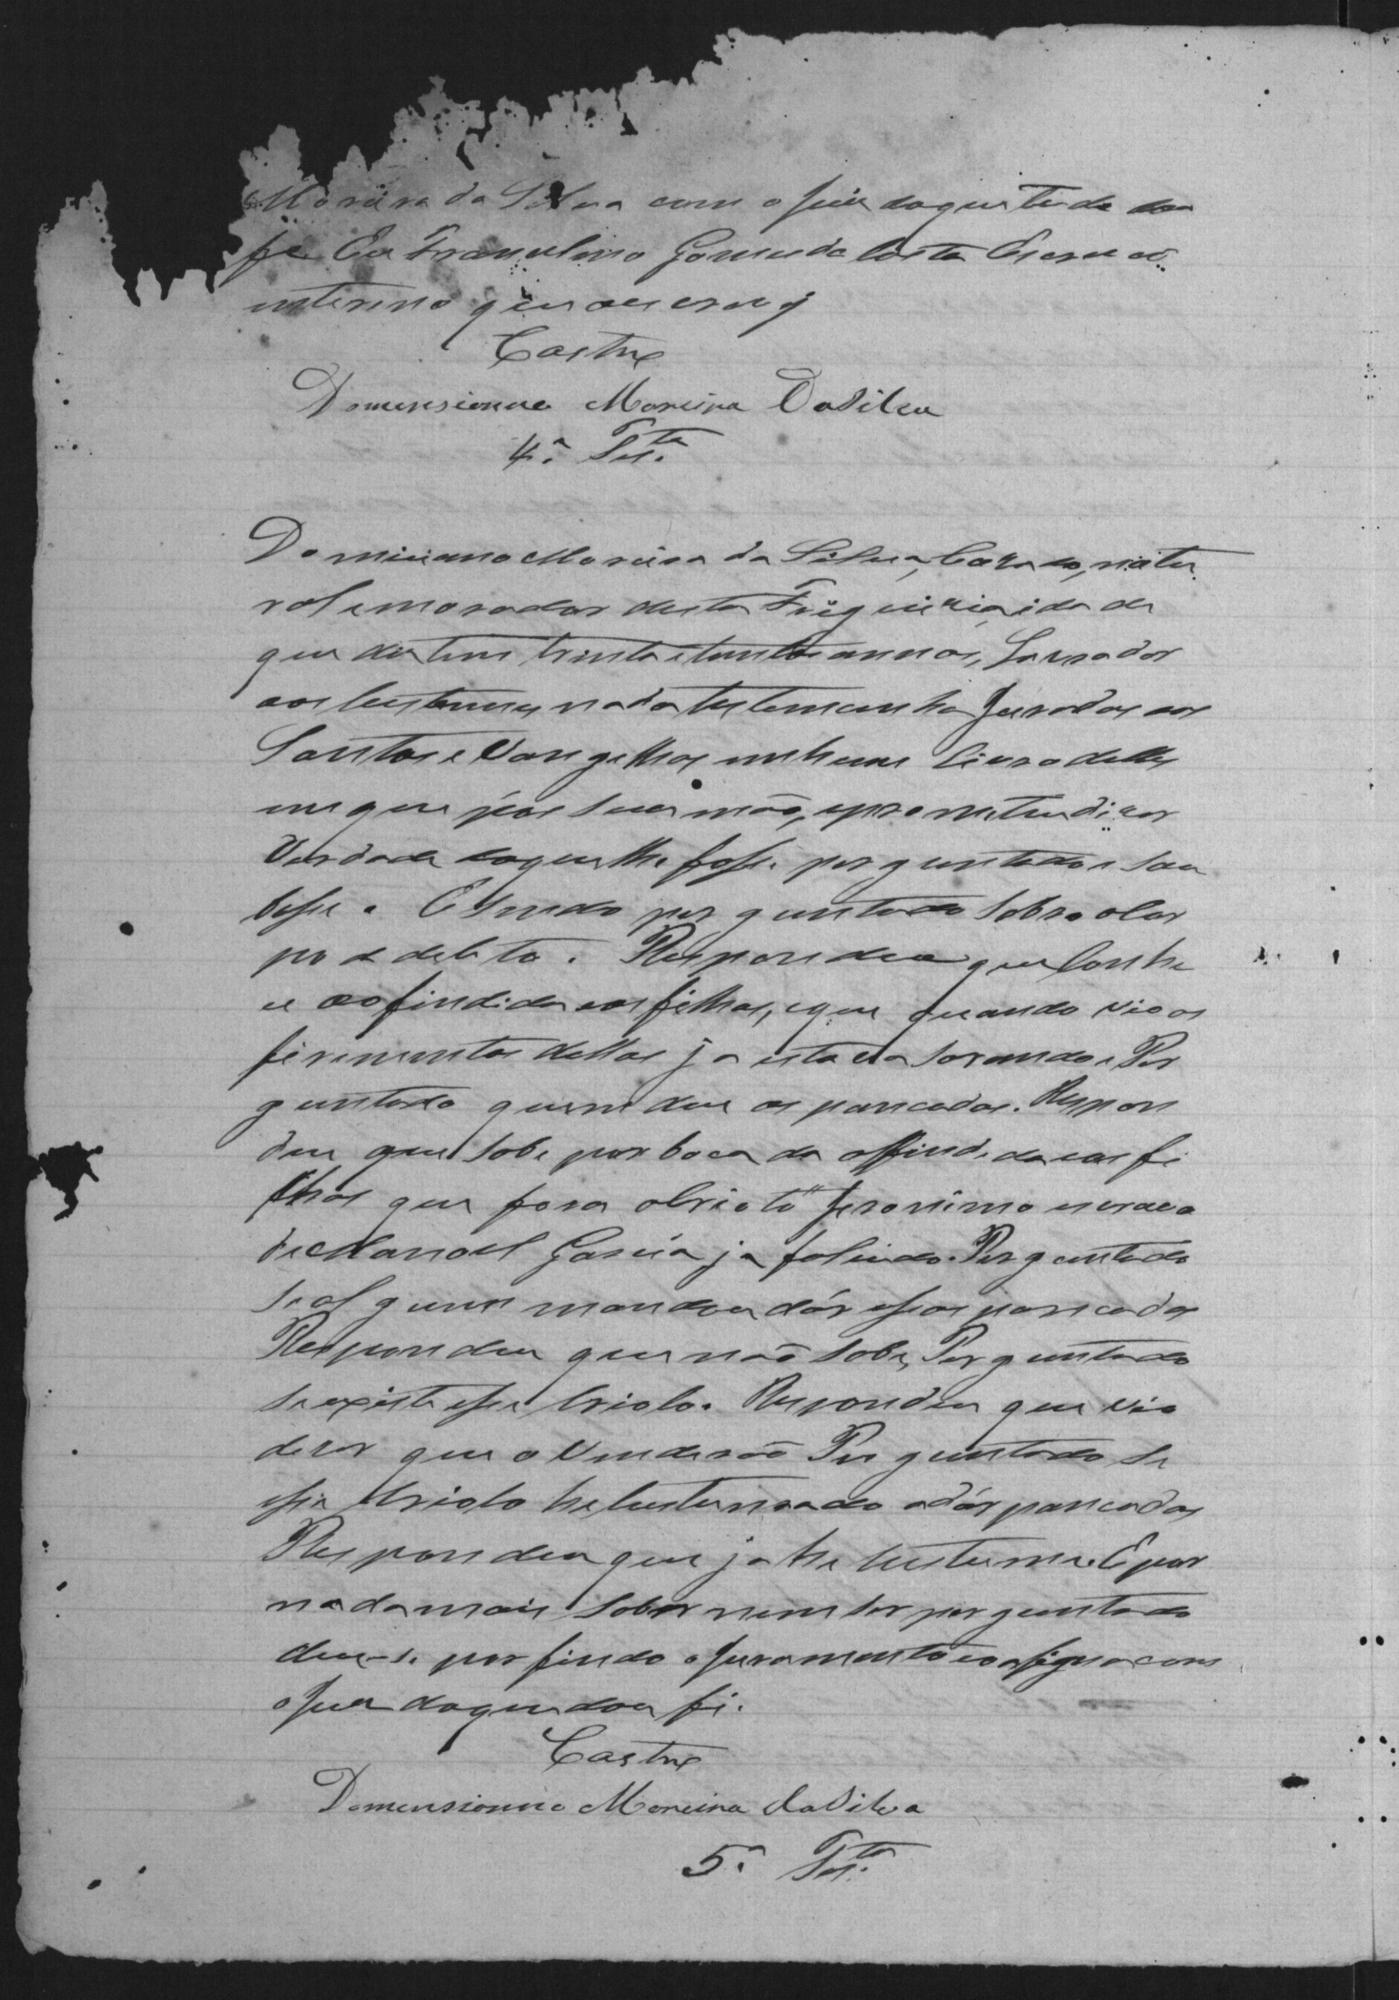 Moreira da Silva com o Juiz do que tudo dou
fé Eu Francelino Gomes da Costa Escrivão
interino que o escrevy
Castro
Domensiano Moreira DaSilva
4.ª Test.ta
Domiciano Moreira da Silva, Cazado, natu
ral e morador desta Freguizia, idade
que dis tem trinta e tantos annos, Lavrador
aos Custumes nada testemunha Jurada aos
Santos eVangelhos em hum Livro delles
em que pos sua mão, e prometeu dizer
Verdade do que lhe fosse perguntado e sou
besse. E Sendo perguntado Sobre o Cor
po de delito. Respondeo que Conhe
ce a offindida e os filhos, e que quando vio os
ferimentos dellas ja estava Sarando e Per
guntado quem deu as pancadas. Respon
deu que Sabe por boca da offindida e os fi
lhos que fora o Crioto Jeronimo escravo
de Manoel Garcia ja falicido. Perguntado
Se alguem mandou dár essas pancadas
Respondeu que não Sabe, Perguntado
Se existe esse Criolo. Respondeu que vio
dizer que o Venderaõ Perguntado Se
esse Criolo he Custumado a dár pancadas
Respondeu que ja he Custume. E por
nada mais Saber nem Ser perguntado
deu-se por findo o Juramento e o assigna com
o Juiz do que dou fé.
Castro
Domensiano Moreira DaSilva
5.ª Test.ta